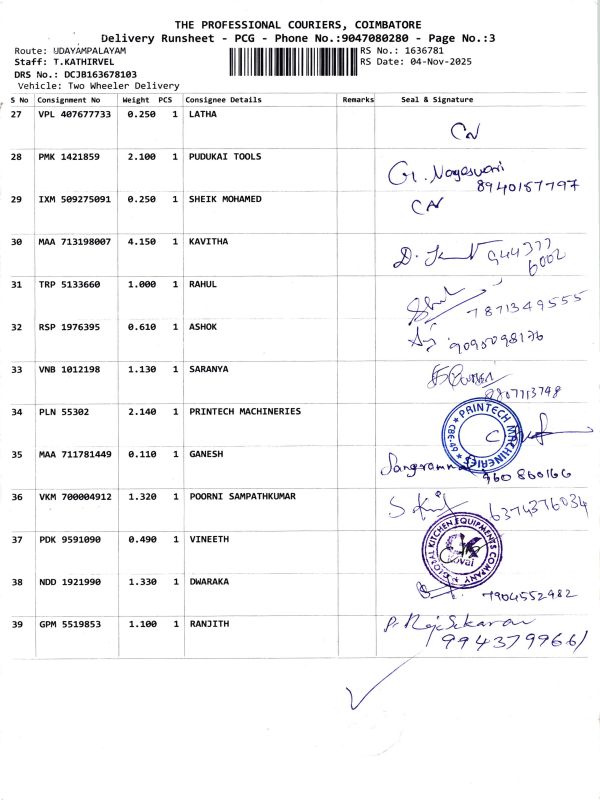 THE PROFESSIONAL COURIERS, COIMBATORE
Delivery Runsheet - PCG - Phone No.:9047080280 - Page No.:3
Route: UDAYAMPALAYAM RS No.: 1636781
Staff: T.KATHIRVEL RS Date: 04-Nov-2025
DRS No.: DCJB163678103
Vehicle: Two Wheeler Delivery
S No Consignment No Weight PCS Consignee Details Remarks Seal & Signature
27 VPL 407677733 0.250 1 LATHA
28 PMK 1421859 2.100 1 PUDUKAI TOOLS
G. Nageswari
8940157797
29 IXM 509275091 0.250 1 SHEIK MOHAMED
30 MAA 713198007 4.150 1 KAVITHA
944377
6002
31 TRP 5133660 1.000 1 RAHUL
7871349555
32 RSP 1976395 0.610 1 ASHOK
9095098176
33 VNB 1012198 1.130 1 SARANYA
8807113748
34 PLN 55302 2.140 1 PRINTECH MACHINERIES
PRINTECH MACHINERIES CBE-49
35 MAA 711781449 0.110 1 GANESH
960860166
36 VKM 700004912 1.320 1 POORNI SAMPATHKUMAR
6374376034
37 PDK 9591090 0.490 1 VINEETH
GLOBAL KITCHEN EQUIPMENTS COMPANY
Covai
38 NDD 1921990 1.330 1 DWARAKA
7904552982
39 GPM 5519853 1.100 1 RANJITH
P. RajSekaran
9943799661